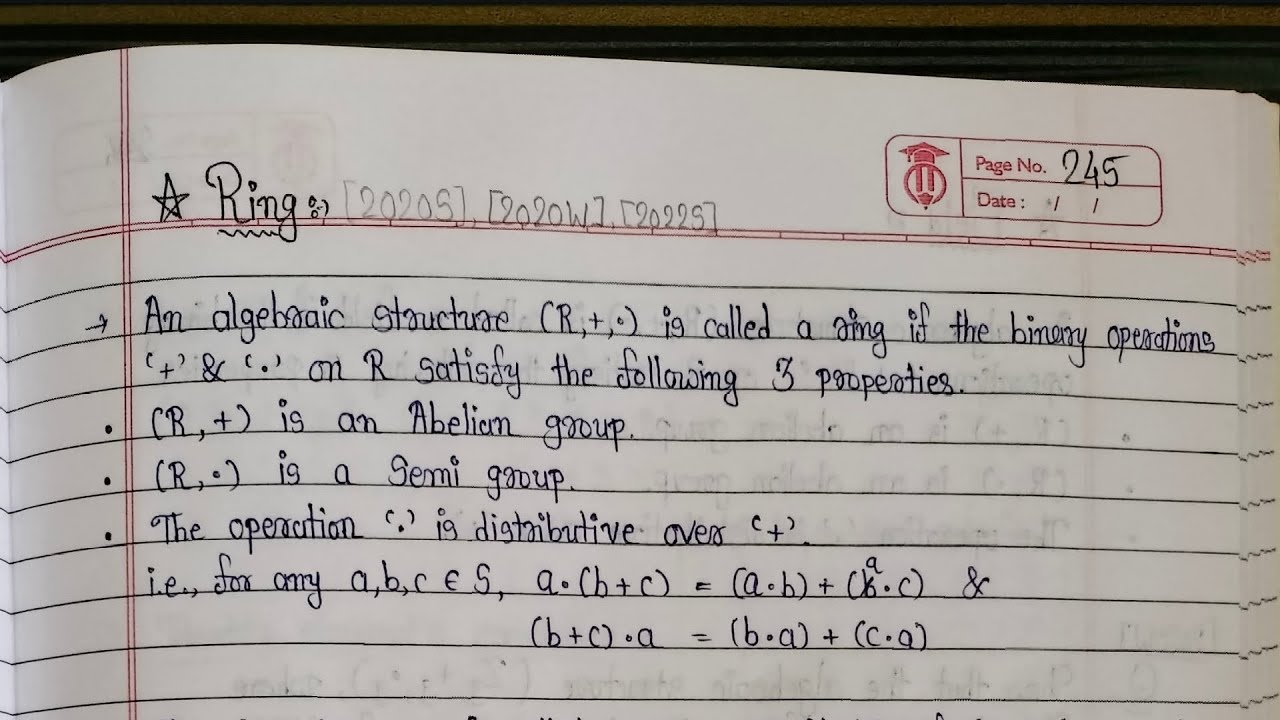 Page No. 245
Date : / /
☆ Ring :) [2020S], [2020W], [2022S]
→ An algebraic structure (R,+,·) is called a ring if the binary operations
‘+’ & ‘·’ on R satisfy the following 3 properties.
• (R,+) is an Abelian group.
• (R,·) is a Semi group.
• The operation ‘·’ is distributive over ‘+’.
i.e., for any a,b,c ∈ S, a·(b+c) = (a·b)+(a·c) &
(b+c)·a = (b·a)+(c·a)